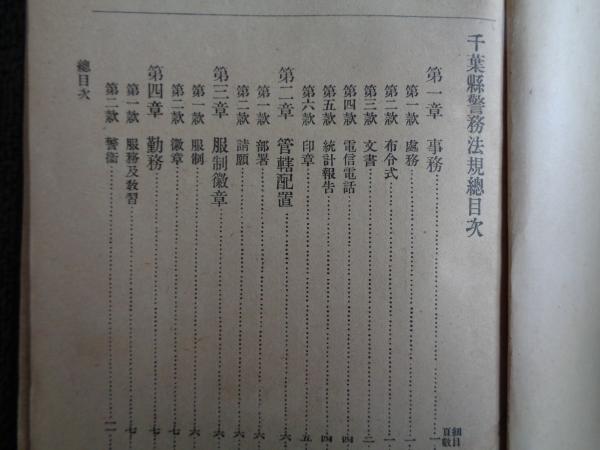 千葉縣警務法規總目次
細目頁數
第一章 事務……一
第一款 處務……一
第二款 布令式……一
第三款 文書……二
第四款 電信電話……四
第五款 統計報告……四
第六款 印章……五
第二章 管轄配置……六
第一款 部署……六
第二款 請願……六
第三章 服制徽章……六
第一款 服制……六
第二款 徽章……七
第四章 勤務……七
第一款 服務及敎習……七
第二款 警衞……一一
總目次